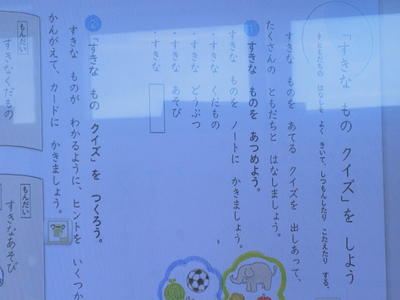 「すきな もの クイズ」を しよう
ともだちの はなしを よく きいて、しつもんしたり こたえたり する。
すきな ものを あてる クイズを 出しあって、
たくさんの ともだちと はなしましょう。
1 すきな ものを あつめよう。
すきな ものを ノートに かきましょう。
・すきな くだもの
・すきな どうぶつ
・すきな あそび
2 「すきな もの クイズ」を つくろう。
すきな ものが わかるように、ヒントを いくつか
かんがえて、カードに かきましょう。
もんだい
すきなくだもの
もんだい
すきなあそび